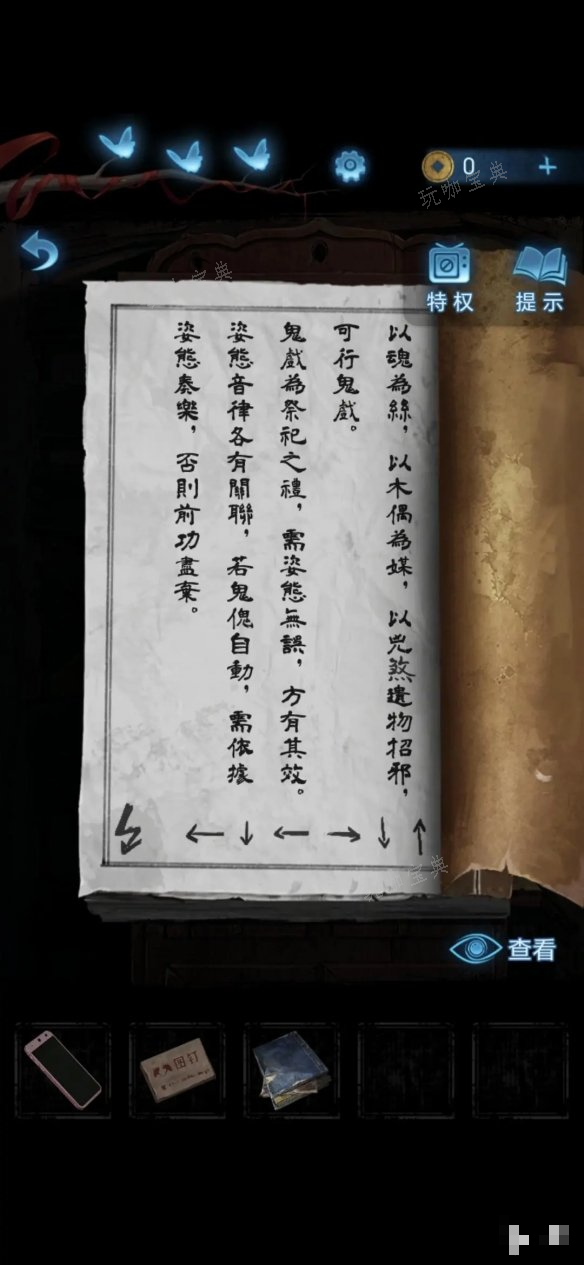 玩咖宝典
0
宝典
特权
提示
以魂為絲，以木偶為媒，以兇煞遺物招邪，
可行鬼戲。
鬼戲為祭祀之禮，需姿態無誤，方有其效。
姿態音律各有關聯，若鬼傀自動，需依據
姿態奏樂，否則前功盡棄。
↑↓→←↓←
宝典
查看
图钉